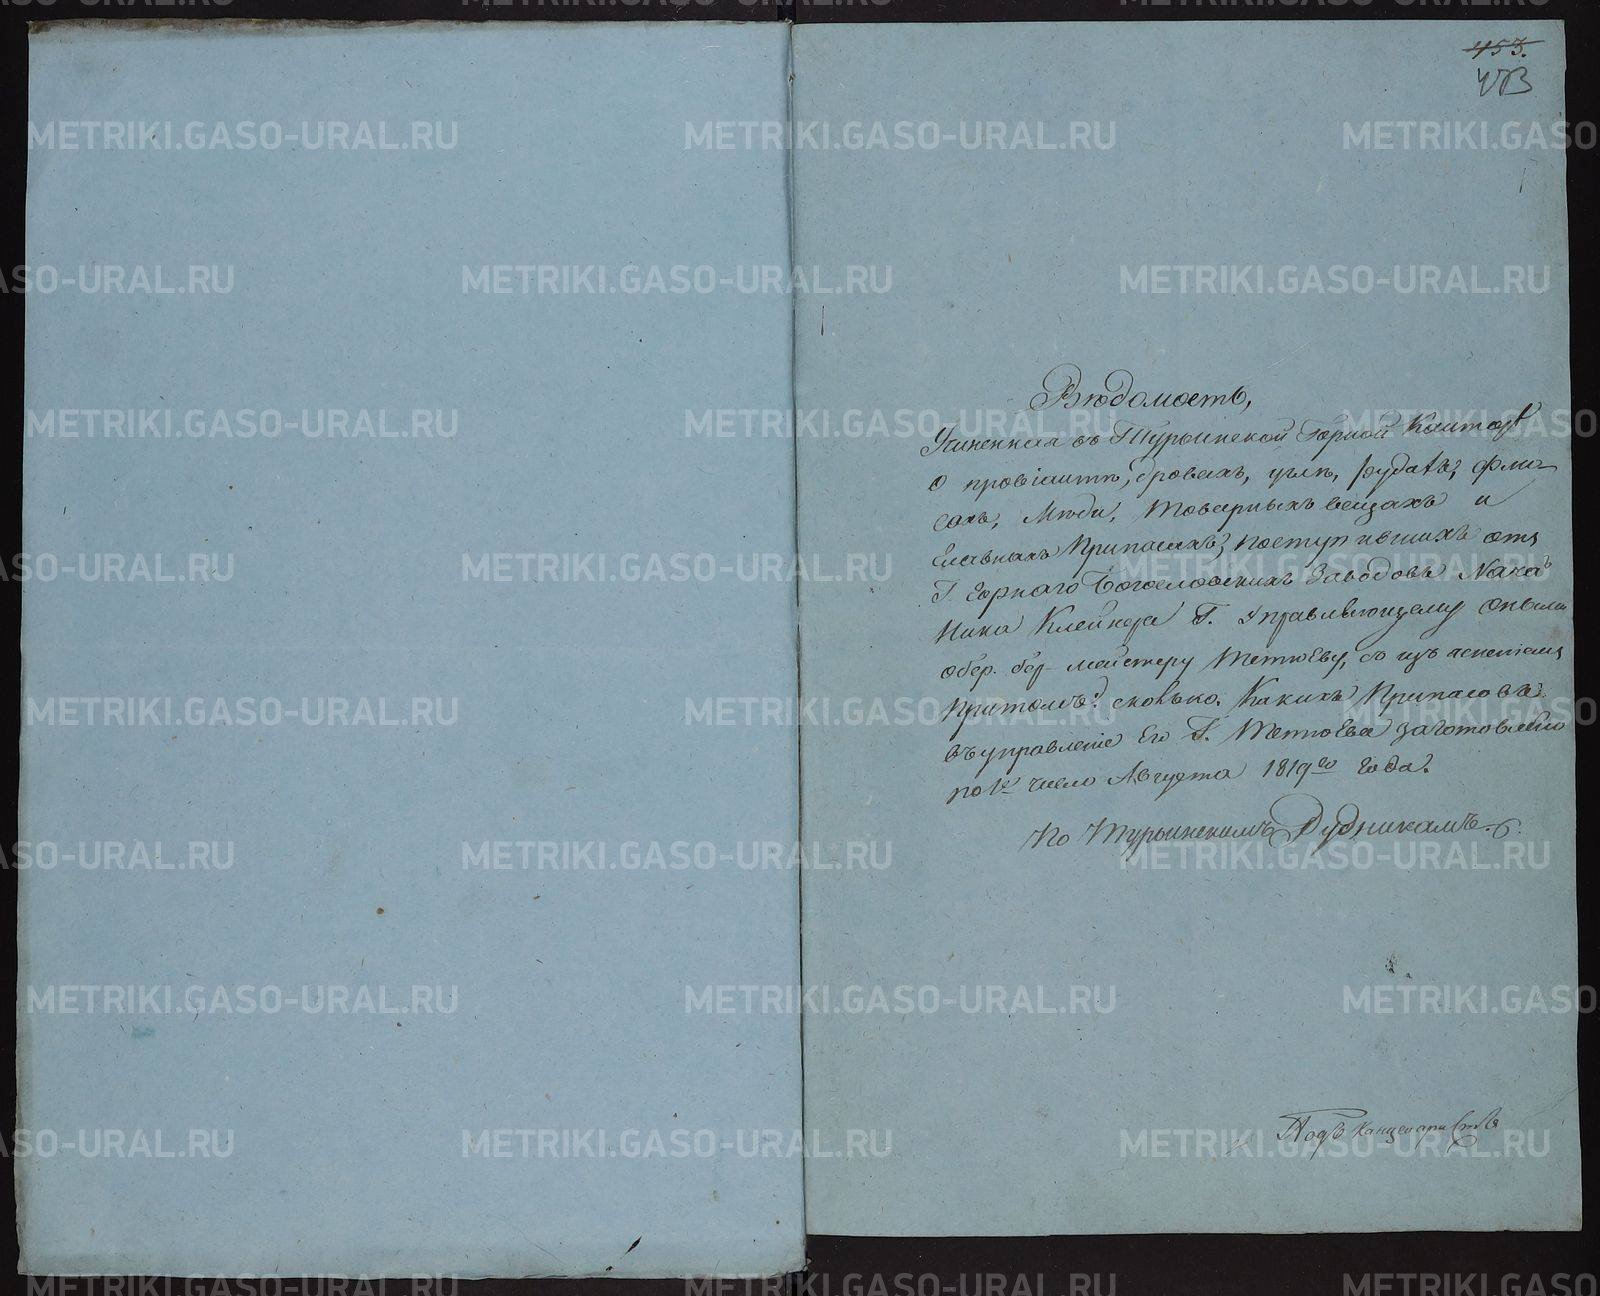 453.
Вѣдомость,
Учиненная въ Турьинской Горной Канторѣ
О провіантѣ, дровахъ, углѣ, рудахъ, флю-
сахъ, Мѣди, товарныхъ вещахъ и
Главныхъ Припасахъ, поступившихъ отъ
Г. Горнаго Богословскихъ Заводовъ Начал
ника Клейнера Г. Управляющему Оными
обер. бер- майстеру Тетюеву, съ изъясненіемъ
Притомъ: сколько Какихъ Припасовъ
въ управленіе Его Г. Тетюева заготовлено
по 1е число Августа 1819го Года.
По Турьинскимъ Рудникамъ.
Подъ канцеляристъ